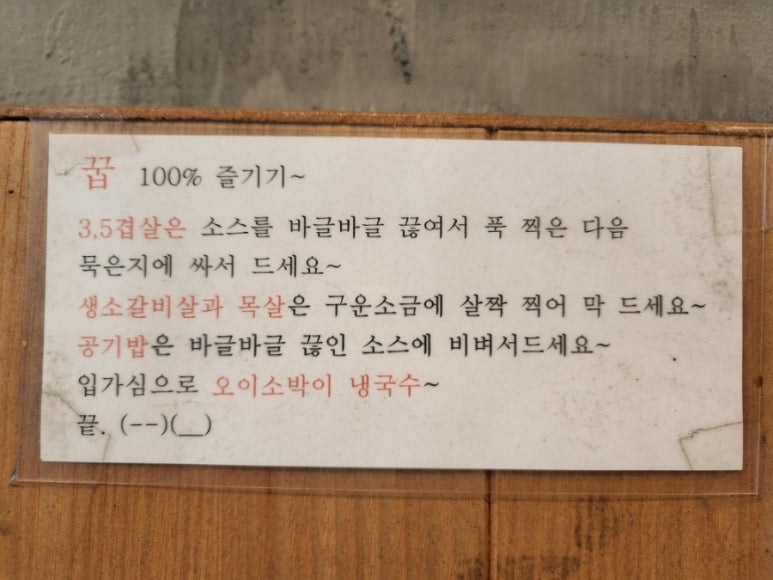 꿉 100% 즐기기~
3.5겹살은 소스를 바글바글 끓여서 푹 찍은 다음
묵은지에 싸서 드세요~
생소갈비살과 목살은 구운소금에 살짝 찍어 막 드세요~
공기밥은 바글바글 끓인 소스에 비벼서드세요~
입가심으로 오이소박이 냉국수~
끝. (--)(__)